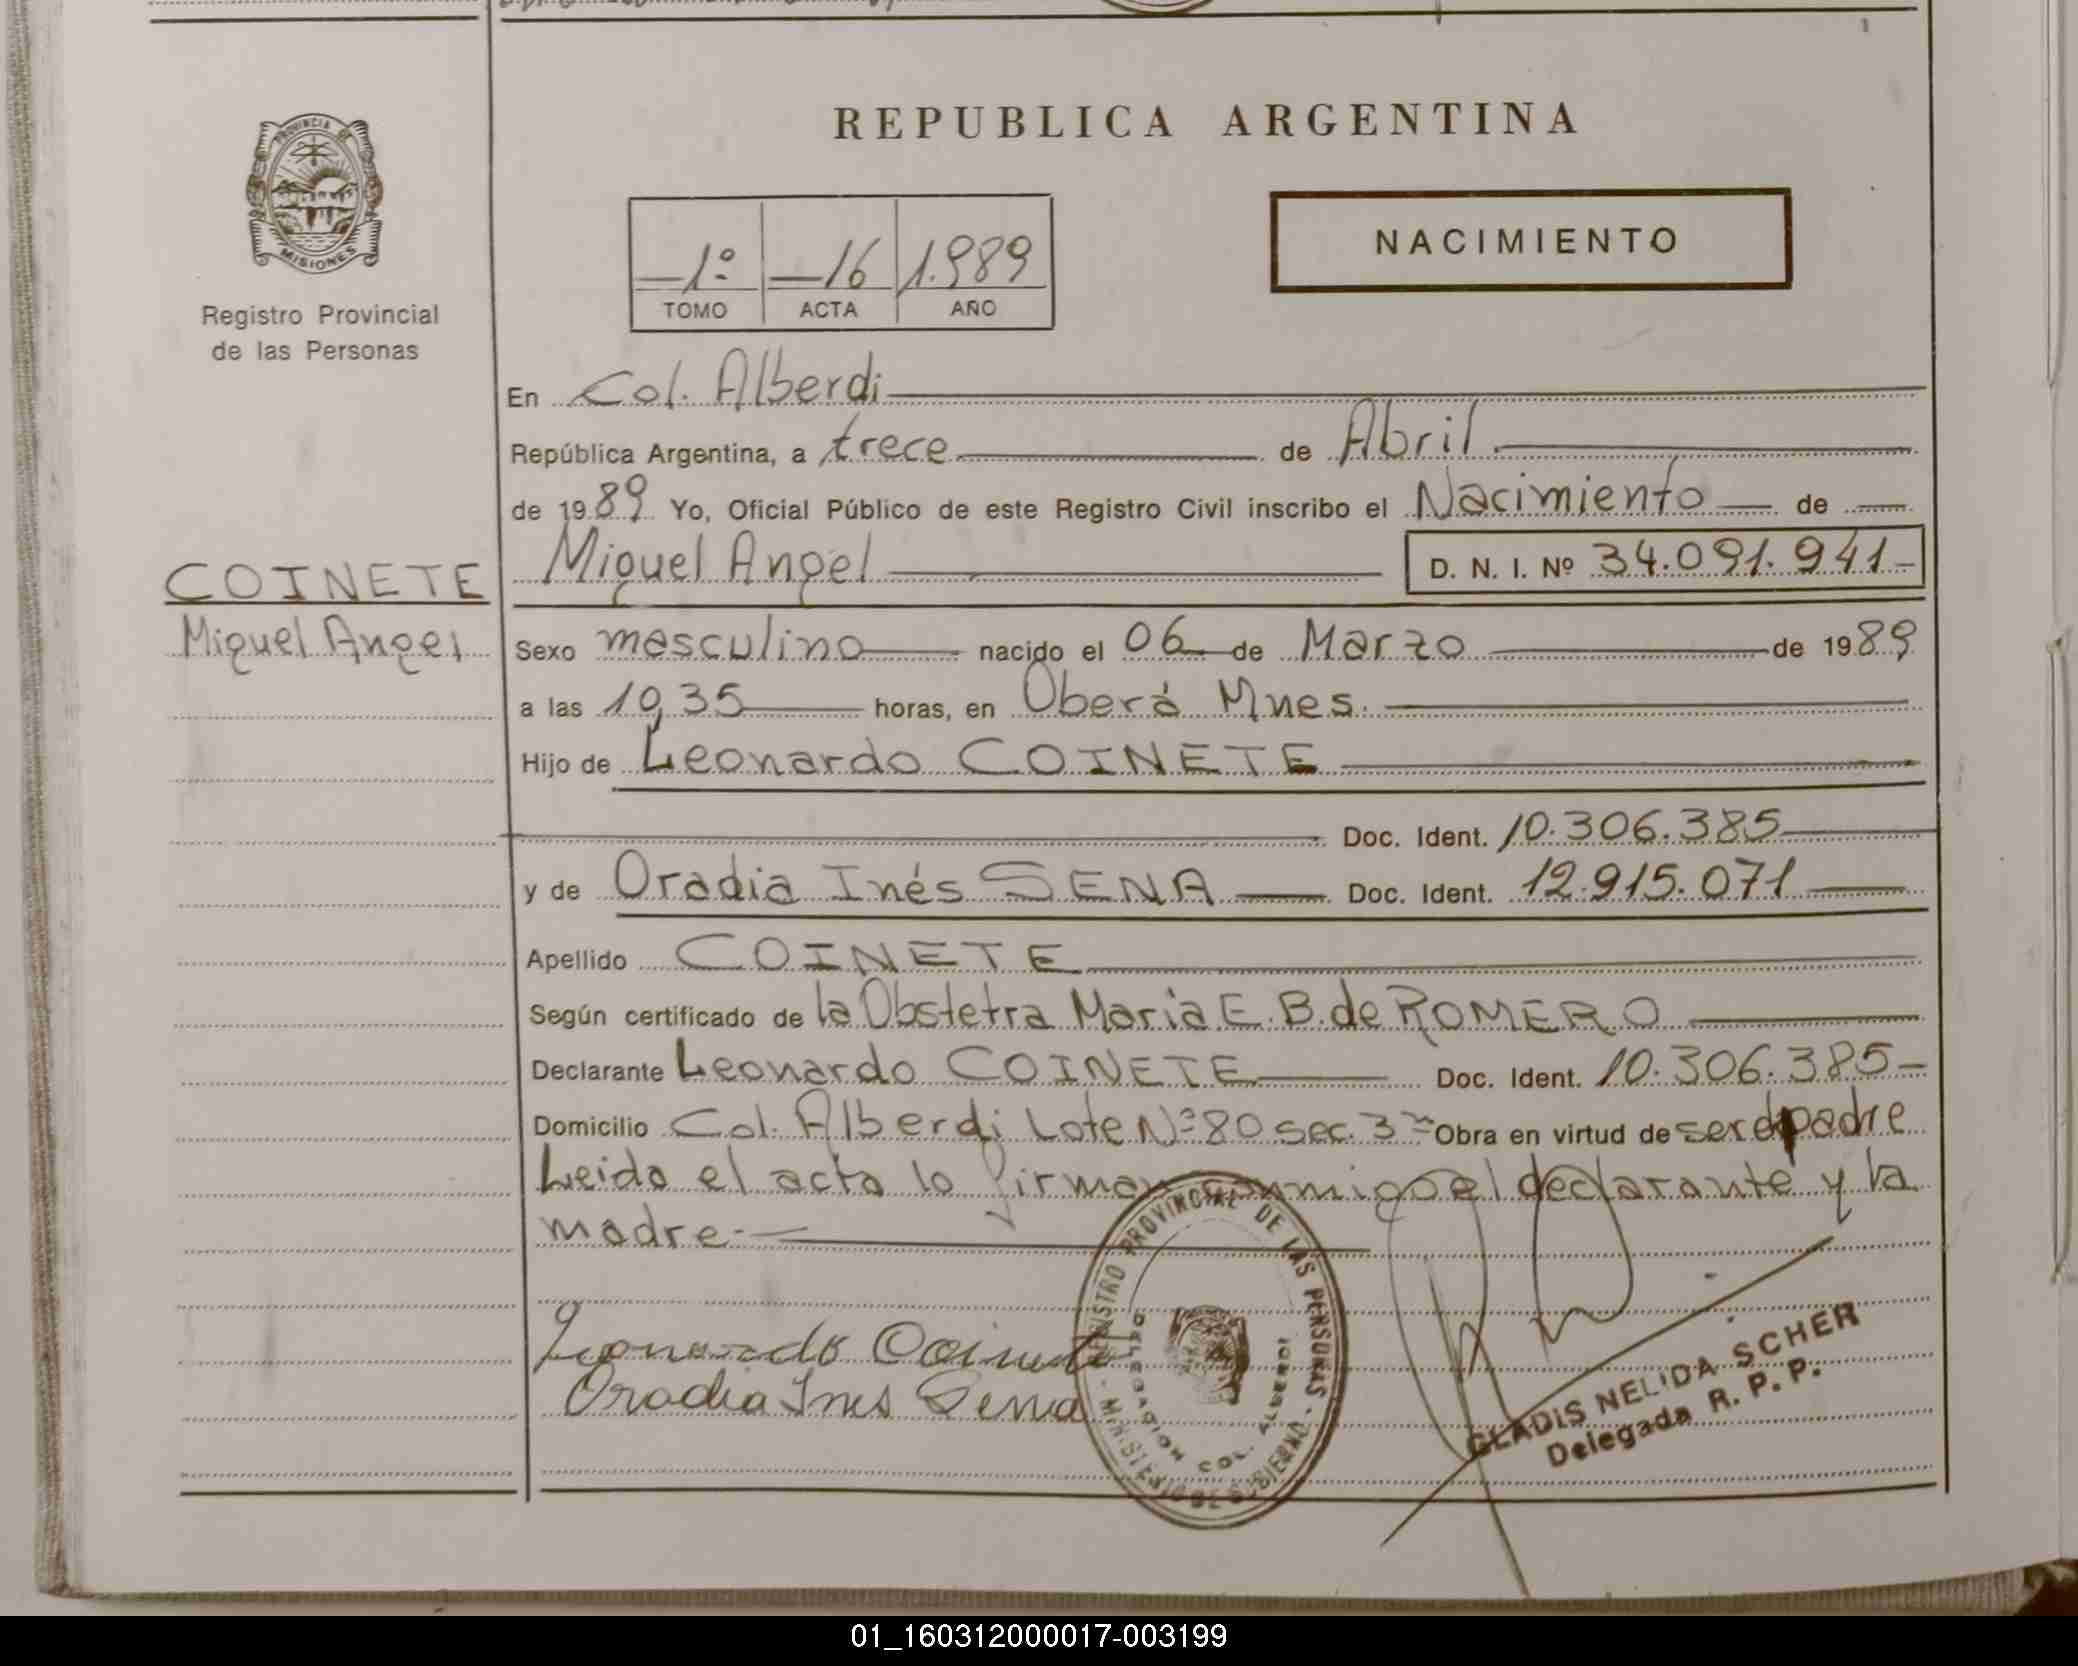 REPUBLICA ARGENTINA
PROVINCIA DE
MISIONES
Registro Provincial
de las Personas
1º 16 1.989
TOMO ACTA AÑO
NACIMIENTO
En Col. Alberdi
República Argentina, a trece de Abril
de 1989 Yo, Oficial Público de este Registro Civil inscribo el Nacimiento de
COINETE
Miguel Angel
Miguel Angel D. N. I. Nº 34.091.941-
Sexo masculino nacido el 06 de Marzo de 1989
a las 10,35 horas, en Oberá Mnes.
Hijo de Leonardo COINETE
Doc. Ident. 10.306.385
y de Oradia Inés SENA Doc. Ident. 12.915.071
Apellido COINETE
Según certificado de la Obstetra Maria E. B. de ROMERO
Declarante Leonardo COINETE Doc. Ident. 10.306.385-
Domicilio Col. Alberdi Lote Nº 80 sec. 3ª Obra en virtud de ser el padre
Leida el acta lo firman conmigo el declarante y la
madre.-
Leonardo Coinete
Oradia Ines Sena
REGISTRO PROVINCIAL DE LAS PERSONAS - MINISTERIO DE GOBIERNO -
DELEGACION COL. ALBERDI
GLADIS NELIDA SCHER
Delegada R. P. P.
01_160312000017-003199